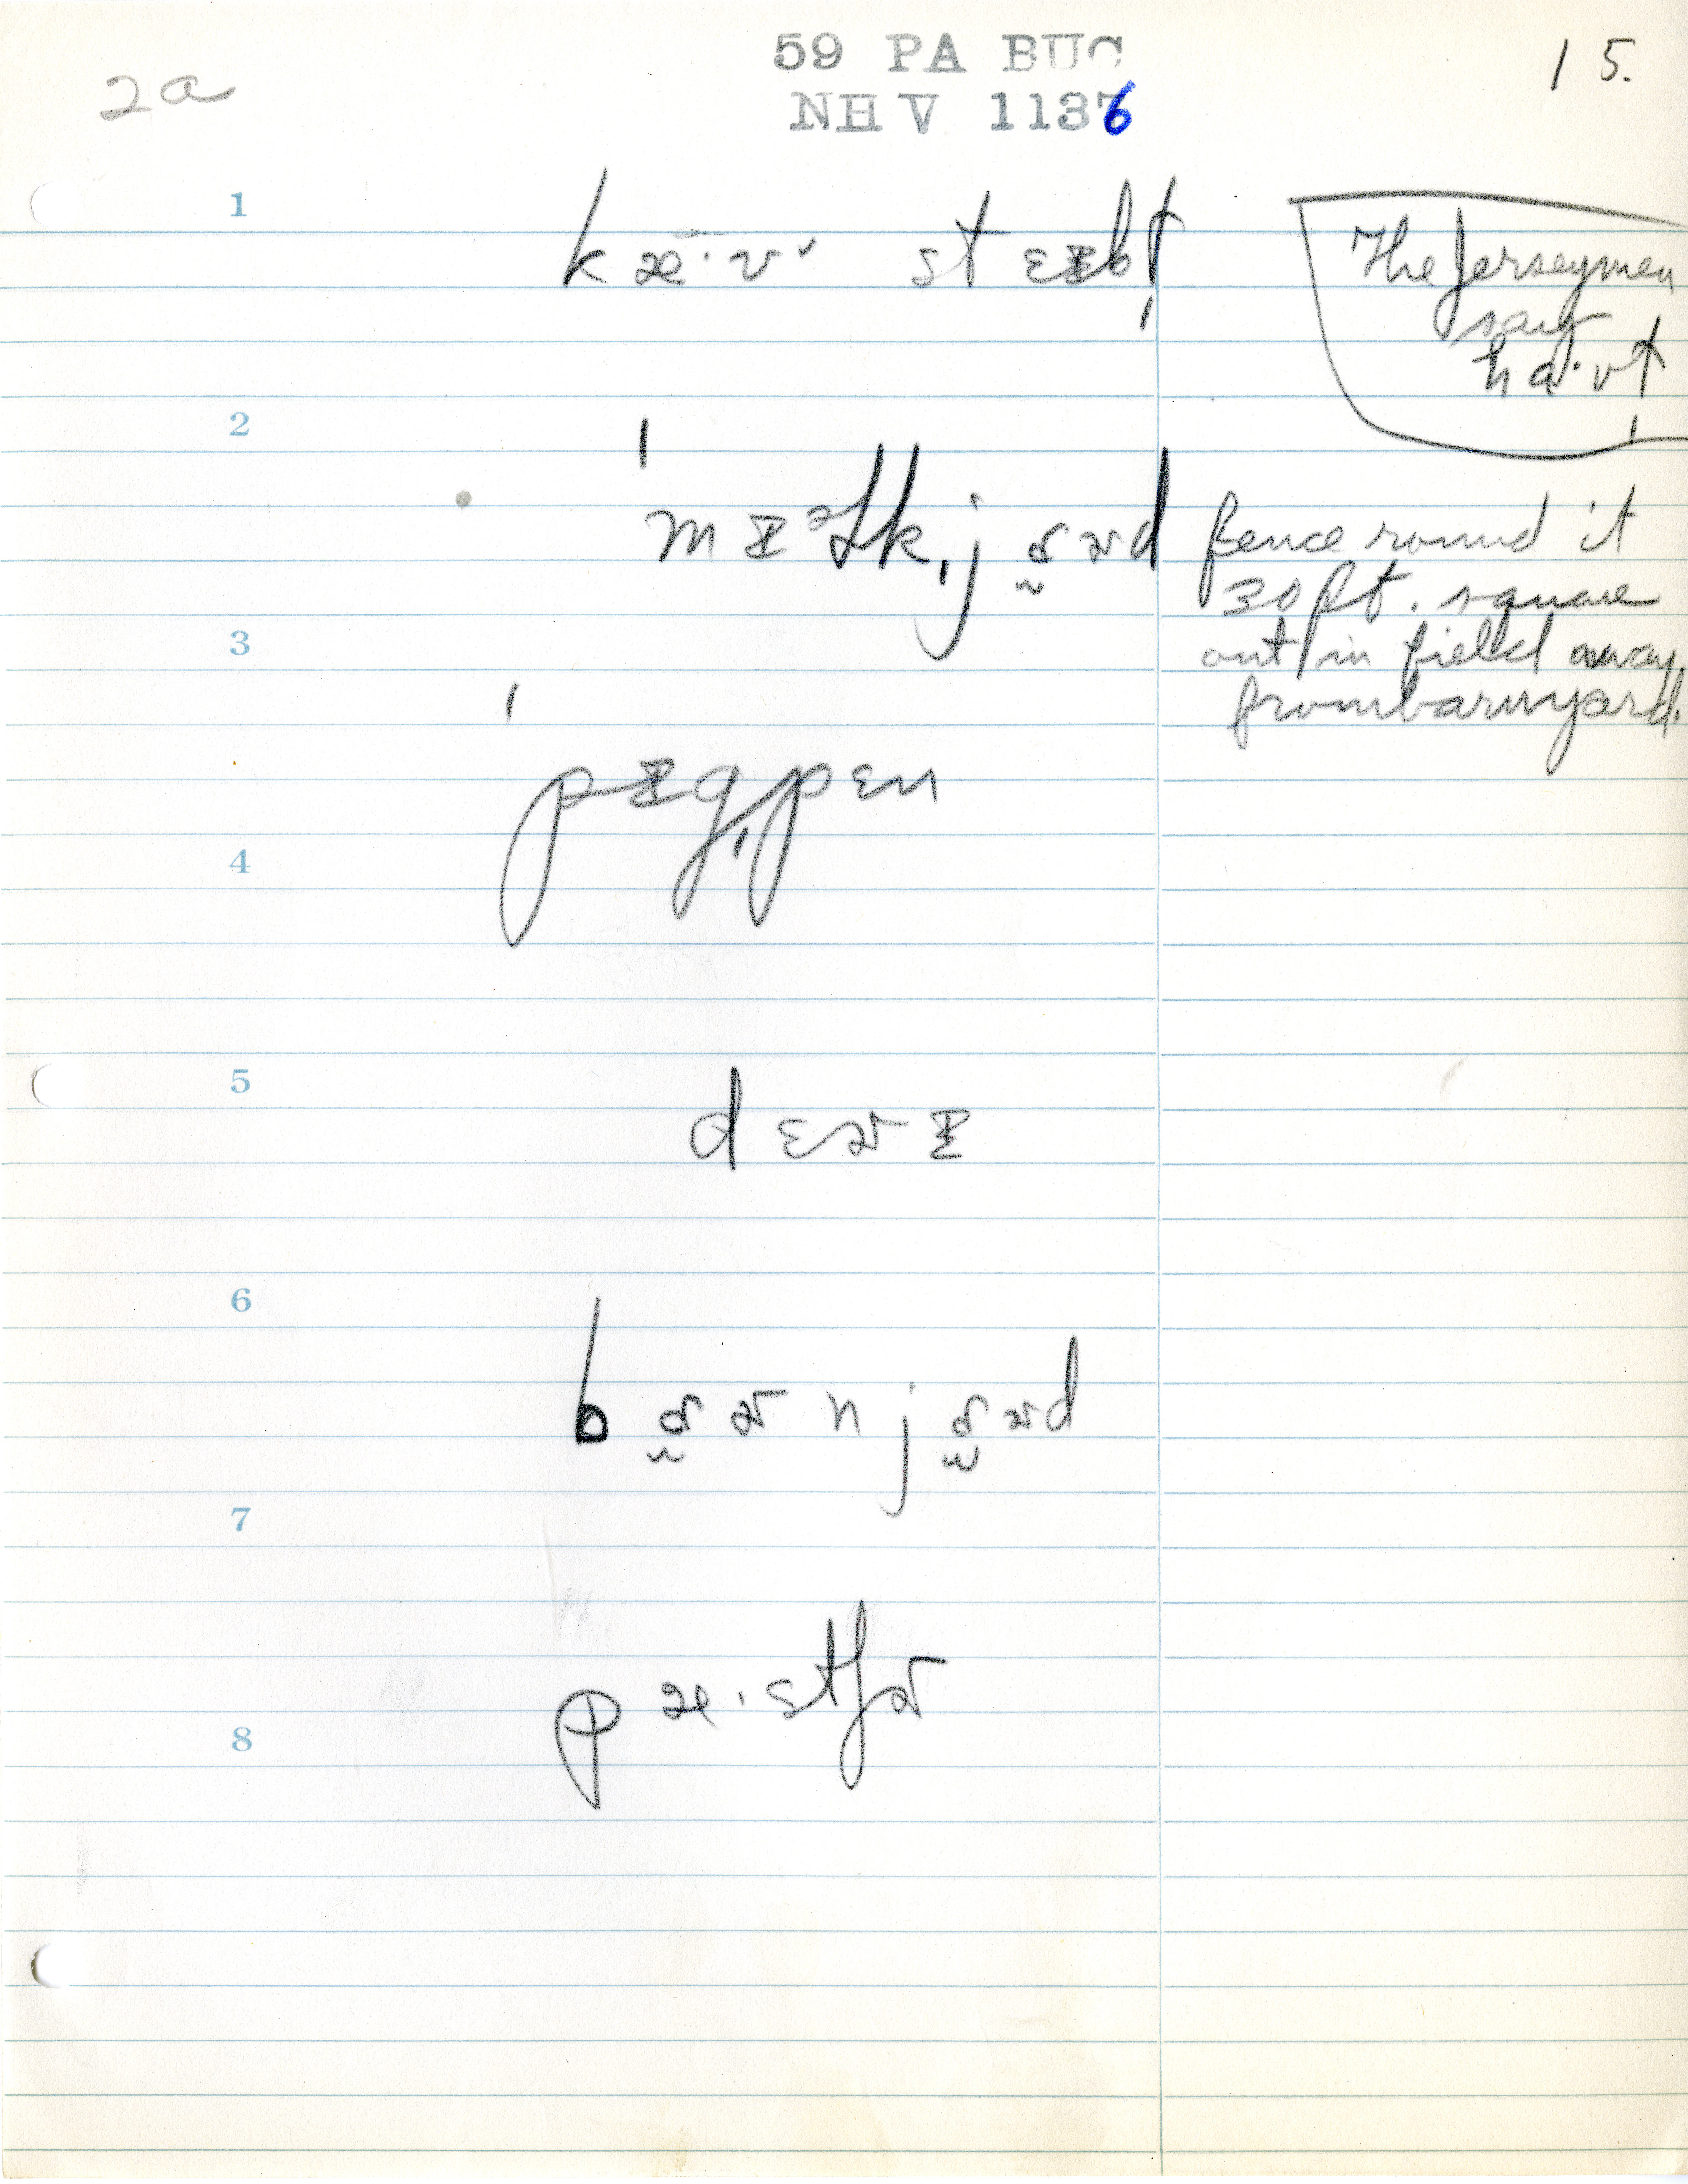 2a
59 PA BUC
NH V 1136
15.
1
kæ·v stɛɪbḷ
The Jerseymen
say
ha·vḷ
2
ˈmɪəlkˌjɑɚd
fence round it
30 ft. square
out in field away
from barnyard.
3
ˈpɪgˌpɛn
4
5
dɛɚɪ
6
bɑɚnjɑɚd
7
pæ·stʃɚ
8